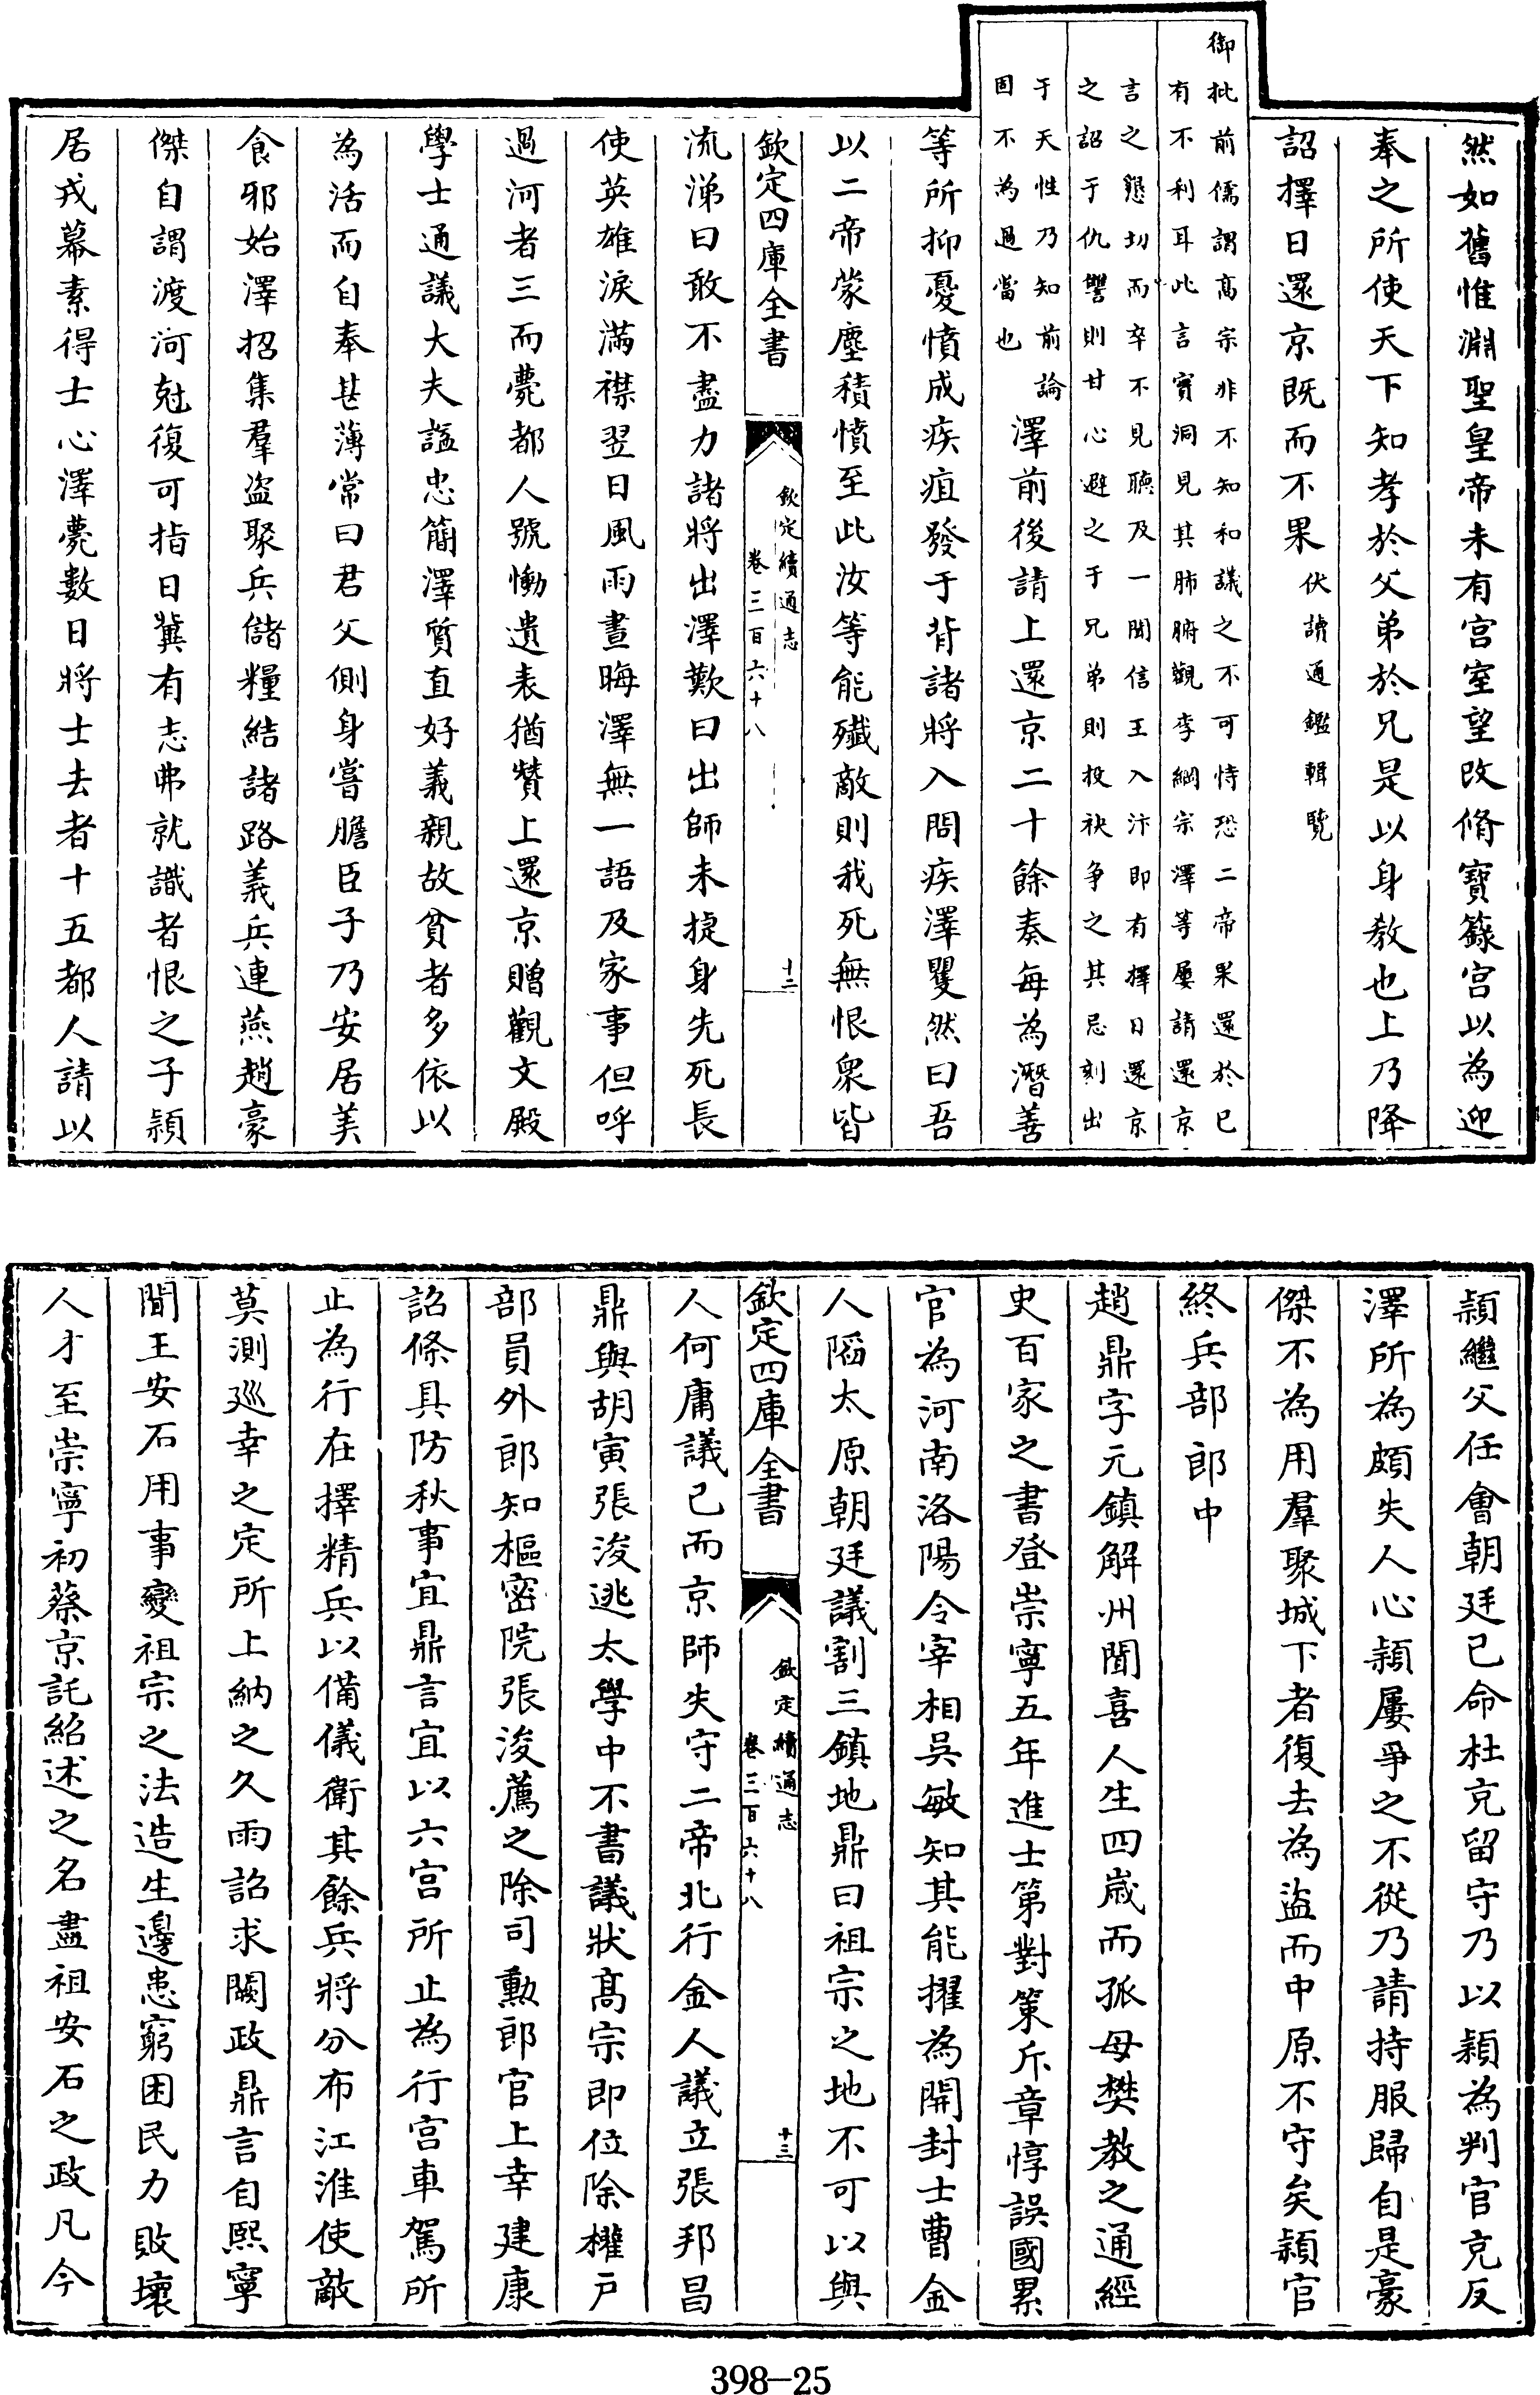 然如舊惟淵聖皇帝未有宫室望改脩寶籙宫以為迎
奉之所使天下知孝於父弟於兄是以身教也上乃降
詔擇日還京既而不果伏讀通鑑輯覽
御批前儒謂髙宗非不知和議之不可恃恐二帝果還於已
有不利耳此言實洞見其肺腑觀李綱宗澤等屢請還京
言之懇切而卒不見聽及一聞信王入汴即有擇日還京
之詔于仇讐則甘心避之于兄弟則投袂争之其忌刻出
于天性乃知前論
固不為過當也
澤前後請上還京二十餘奏每為潛善
等所抑憂憤成疾疽發于背諸將入問疾澤矍然曰吾
以二帝蒙塵積憤至此汝等能殲敵則我死無恨衆皆
欽定四庫全書
欽定續通志
卷三百六十八
十二
流涕曰敢不盡力諸將出澤歎曰出師未捷身先死長
使英雄淚滿襟翌日風雨晝晦澤無一語及家事但呼
過河者三而薨都人號慟遺表猶贊上還京贈觀文殿
學士通議大夫諡忠簡澤質直好義親故貧者多依以
為活而自奉甚薄常曰君父側身嘗膽臣子乃安居美
食邪始澤招集羣盜聚兵儲糧結諸路義兵連燕趙豪
傑自謂渡河尅復可指日冀有志弗就識者恨之子穎
居戎幕素得士心澤薨數日將士去者十五都人請以
穎繼父任會朝廷已命杜充留守乃以穎為判官充反
澤所為頗失人心穎屢爭之不從乃請持服歸自是豪
傑不為用羣聚城下者復去為盜而中原不守矣穎官
終兵部郎中
趙鼎字元鎮解州聞喜人生四歲而孤母樊教之通經
史百家之書登崇寧五年進士第對策斥章惇誤國累
官為河南洛陽令宰相吳敏知其能擢為開封士曹金
人陷太原朝廷議割三鎮地鼎曰祖宗之地不可以與
欽定四庫全書
欽定續通志
卷三百六十八
十三
人何庸議已而京師失守二帝北行金人議立張邦昌
鼎與胡寅張浚逃太學中不書議狀髙宗即位除權户
部員外郎知樞密院張浚薦之除司勳郎官上幸建康
詔條具防秋事宜鼎言宜以六宫所止為行宫車駕所
止為行在擇精兵以備儀衛其餘兵將分布江淮使敵
莫測廵幸之定所上納之久雨詔求闕政鼎言自熙寧
間王安石用事變祖宗之法造生邊患窮困民力敗壞
人才至崇寧初蔡京託紹述之名盡祖安石之政凡今
398-25